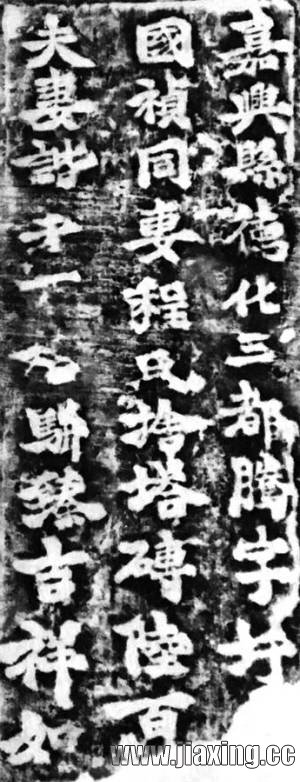 嘉興縣德化三都騰字圩
國禎同妻程氏捨塔磚陸百
夫妻諧 駢臻吉祥如
www.jiaxing.cc